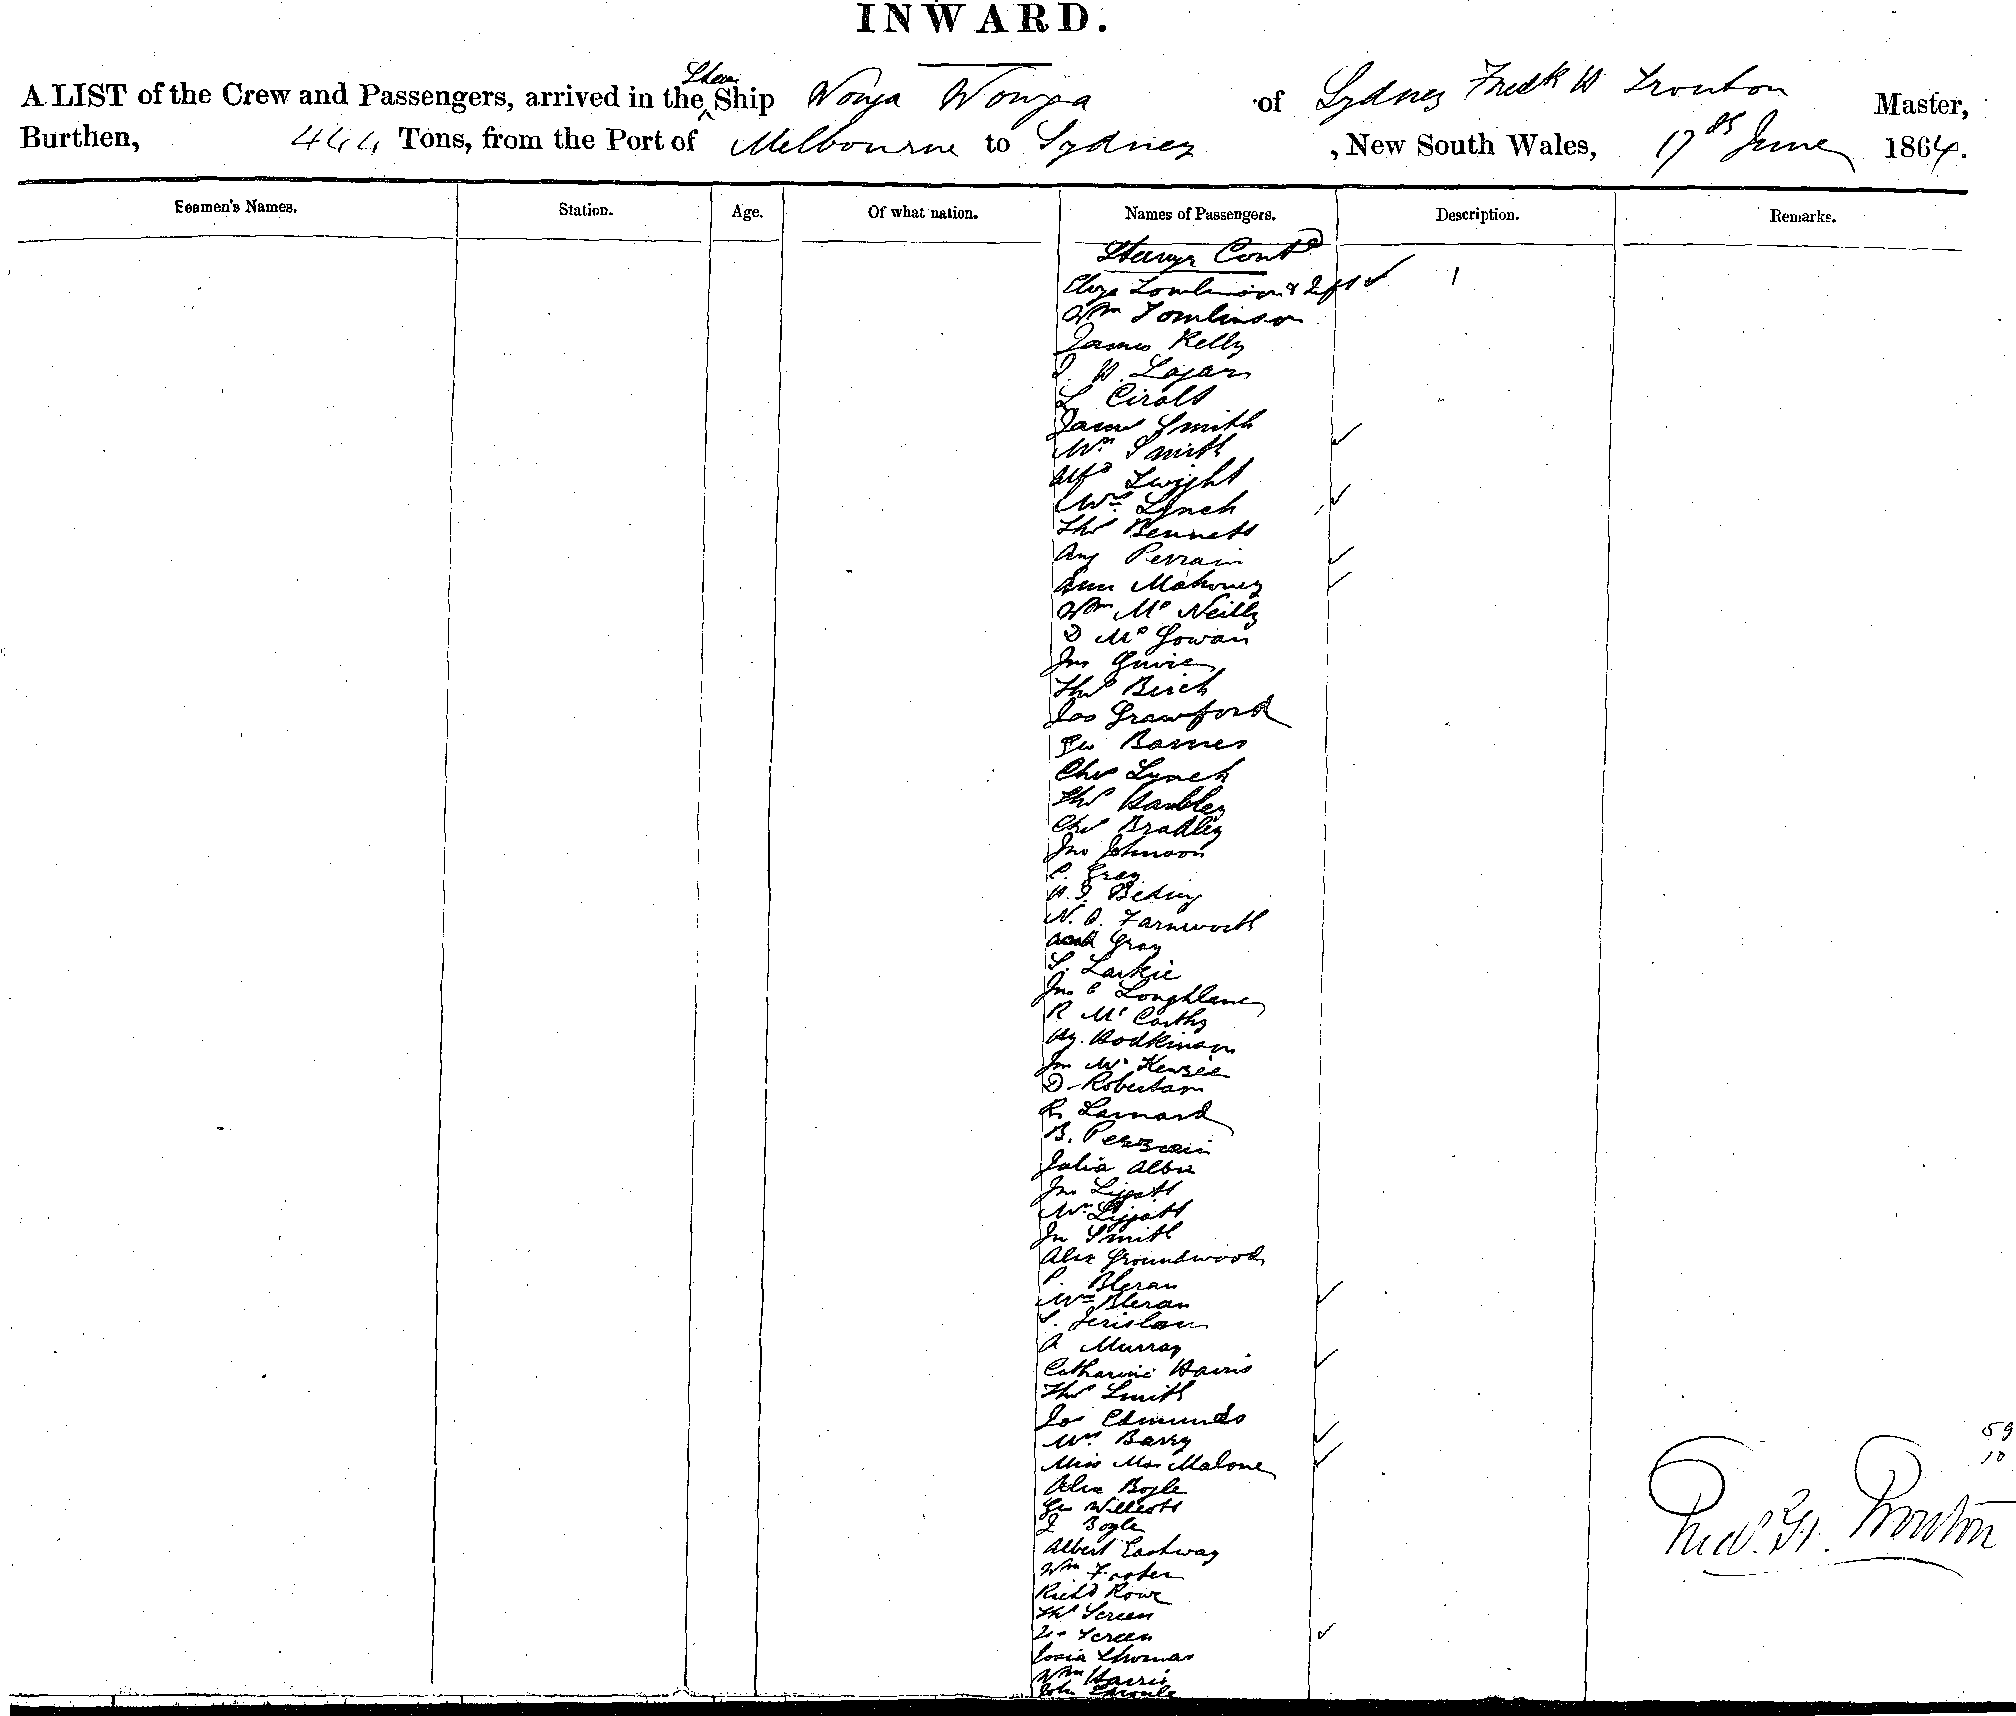 INWARD.
A LIST of the Crew and Passengers, arrived in the Steam Ship Wonga Wonga of Sydney Fredk W Trouton Master,
Burthen, 464 Tons, from the Port of Melbourne to Sydney , New South Wales, 17th June 1864.
Seamen's Names. Station. Age. Of what nation. Names of Passengers. Description. Remarks.
Steerage Contd
Eliza Tomlinson & Inft 1
Wm Tomlinson
James Kelly
Lazar
L
James Smith
Mrs Smith
Alfd Twight
Mrs Lynch
Thos Bennett
Ang Perrain
Ann Mahoney
Wm Mc Neilly
D Mc Gowan
Jno Guire
Thos Birch
Jas Crawford
Geo Barnes
Chas Lynch
Thos Hambley
Chas Bradley
Jno Johnson
C. Gray
N. A. Farnworth
Gray
S. Larkie
Jno C Loughlane
R Mc Carthy
Hy. Hodkinson
Jno Mc Kenzie
D Robertson
R. Larnard
B. Perrain
Julia
Jno Liggatt
Mrs Liggatt
Jno Smith
Alex Groundwood
P. Bleran
Mrs Bleran
A Murray
Catharine Harris
Thos Smith
Jos Edmunds
Mrs Barry
Miss Mar Malone
Alex Boyle
Geo Willcott
J Boyle
Albert Eastway
Wm Foster
Richd Rowe
Thos Screen
Screen
Josia Thomas
Wm Harris
John
59
10
Fred. W. Trouton